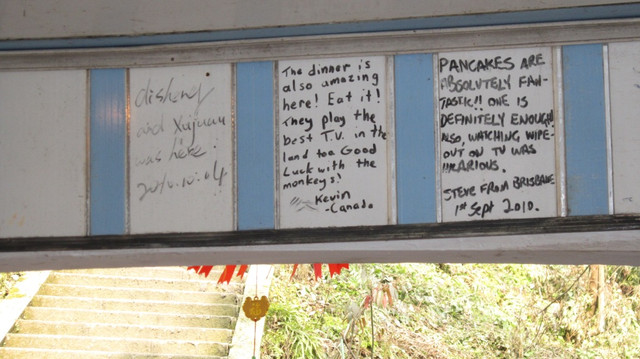 disheng
and Xujuan
was here!
2010.10.04
The dinner is
also amazing
here! Eat it!
They play the
best T.V. in the
land too Good
Luck with the
monkeys!
Kevin
-Canada
PANCAKES ARE
ABSOLUTELY FAN-
TASTIC!! ONE IS
DEFINITELY ENOUGH!
ALSO, WATCHING WIPE-
OUT ON TV WAS
HILARIOUS.
STEVE FROM BRISBANE
1st Sept 2010.